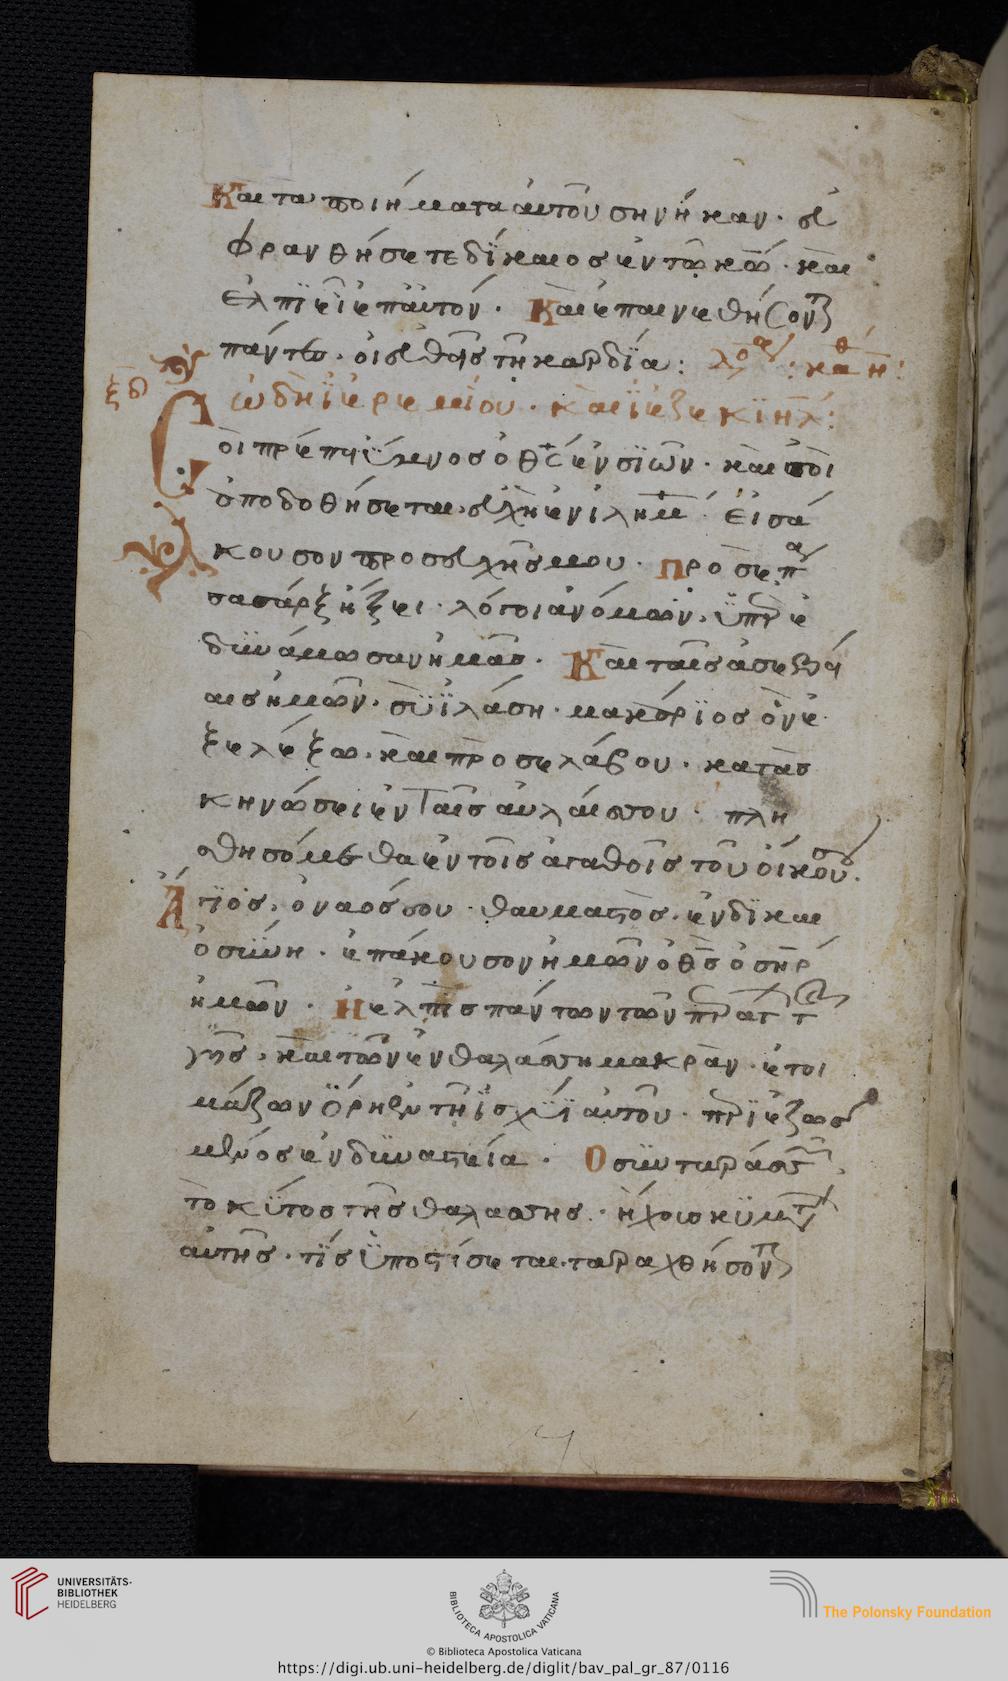 Και τα ποιήματα αυτού σηνήκαν. εὐ
φρανθήσετε δίκαιοσ εν τω κω. και
ελπϊεῖ επαυτόν. Και επαινεθήσοντ
πάντεσ. οι ευθεῖσ τη καρδία:
ξδ
ωδη ϊερεμίου. και ϊεζεκϊηλ:
Σοι πρέπει ύμνοσ ο θσ εν σϊών. και σοι
αποδοθήσεται ευχη εν ιλημ. εισά
κουσον προσευχησ μου. προσ σε π
σα σάρξ ήξει. λόγοι ανόμων. ϋπερε
δϋνάμωσαν ημάσ. Και ταισ ασεβεί
αισ ημών. σϋ ϊλάση. μακάρϊοσ όν ε
ξελέξω. και προσελάβου. κατασ
κηνώσει εν ταισ αυλαίσ σου. πλη
σθησόμεθα εν τοισ αγαθοίσ του οίκου σου.
Άγϊοσ. ο ναόσ σου. θαυμαστόσ. εν δϊκαι
οσϋνη. επάκουσον ημών ο θσ ο σηρ
ημών. Η ελπίσ πάντων των περάτ τ
γησ. και των εν θαλάσση μακράν. ετοι
μάζων όρη εν τη ϊσχύϊ αυτού. περϊεζωσ
μένοσ εν δϋναστεία. Ο σϋνταράσσ
το κϋτοσ της θαλασσησ. ήχουσ κϋμτ
αυτησ. τίσ ϋποστίσεται. ταραχθήσοντ
UNIVERSITÄTS-
BIBLIOTHEK
HEIDELBERG
BIBLIOTECA APOSTOLICA VATICANA
The Polonsky Foundation
© Biblioteca Apostolica Vaticana
https://digi.ub.uni-heidelberg.de/diglit/bav_pal_gr_87/0116